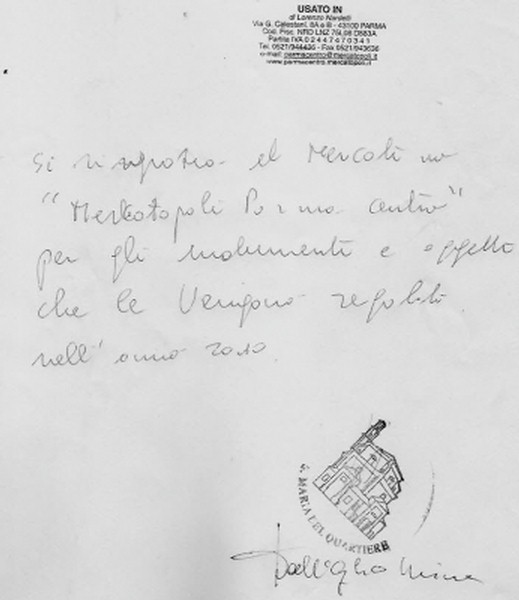 USATO IN
di Lorenzo Nardelli
Via G. Calestani, 8A e B - 43100 PARMA
Cod. Fisc. NRD LNZ 75L08 D583A
Partita IVA 0 2 4 4 7 4 7 0 3 4 1
Tel. 0521/944436 - Fax 0521/943636
e-mail: parmacentro@mercatopoli.it
www.parmacentro.mercatopoli.it
Si ringrazia il Mercatino
"Mercatopoli Parma centro"
per gli indumenti e oggetto
che le vengono regalati
nell'anno 2010
S. MARIA DEL QUARTIERE
Dall'Aglio